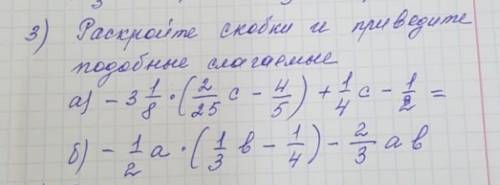 3) Раскройте скобки и приведите
подобные слагаемые
а) - 3 1/8 · (2/25 c - 4/5) + 1/4 c - 1/2 =
б) - 1/2 a · (1/3 в - 1/4) - 2/3 а в